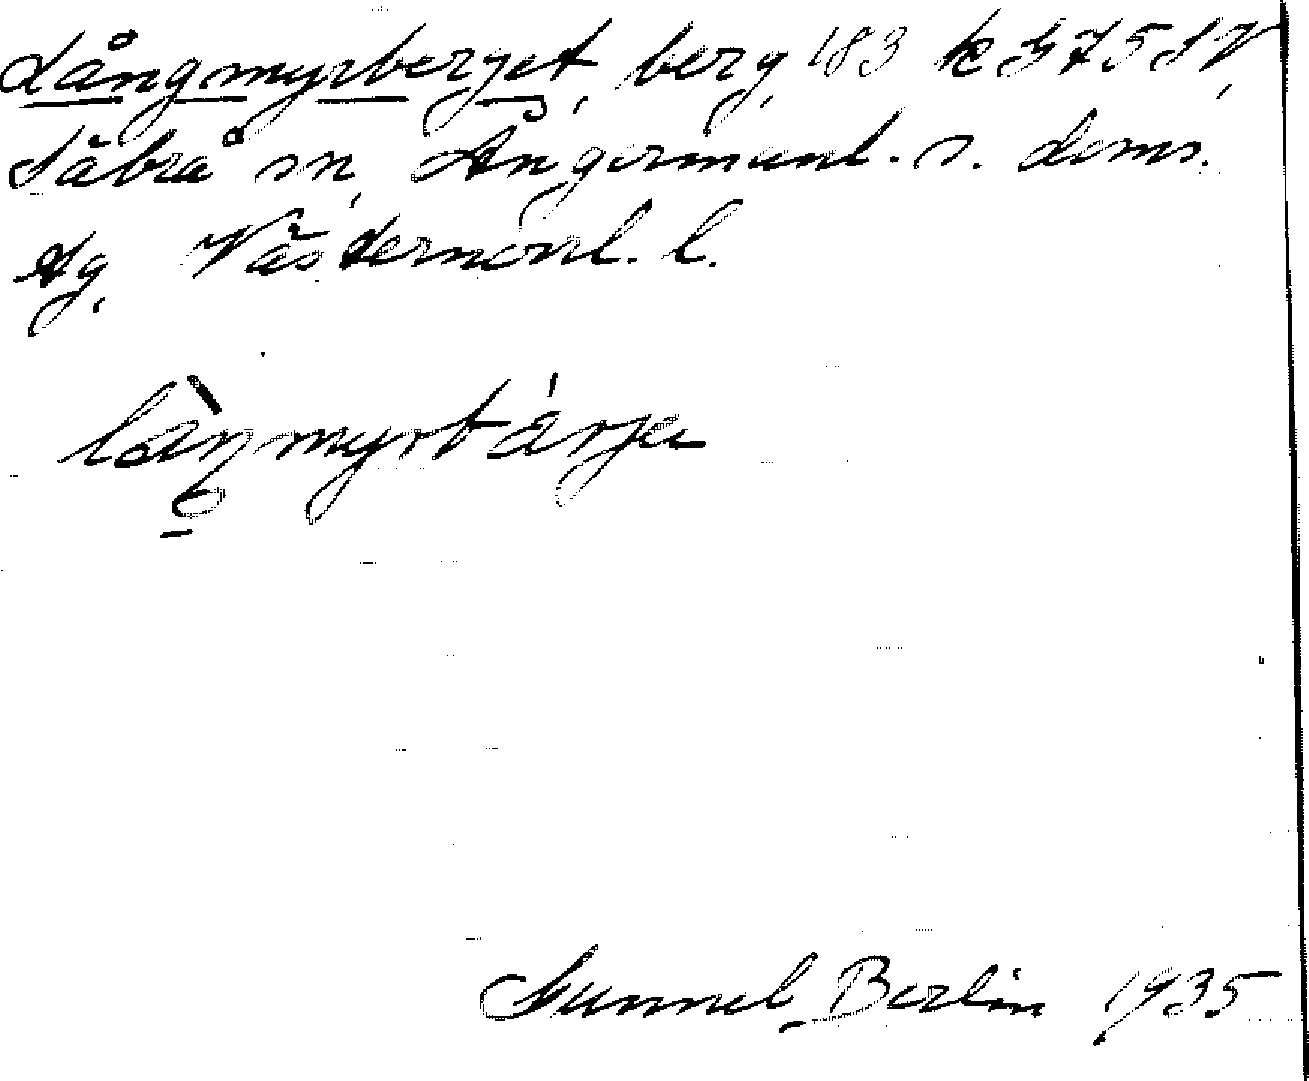 Långmyrberget, berg 183 k G 75 SV,
Säbrå sn, Ångermanl. s. doms.
tg, Västernorrl. l.
lån̹myrbärje
Gunnel Berlin 1935